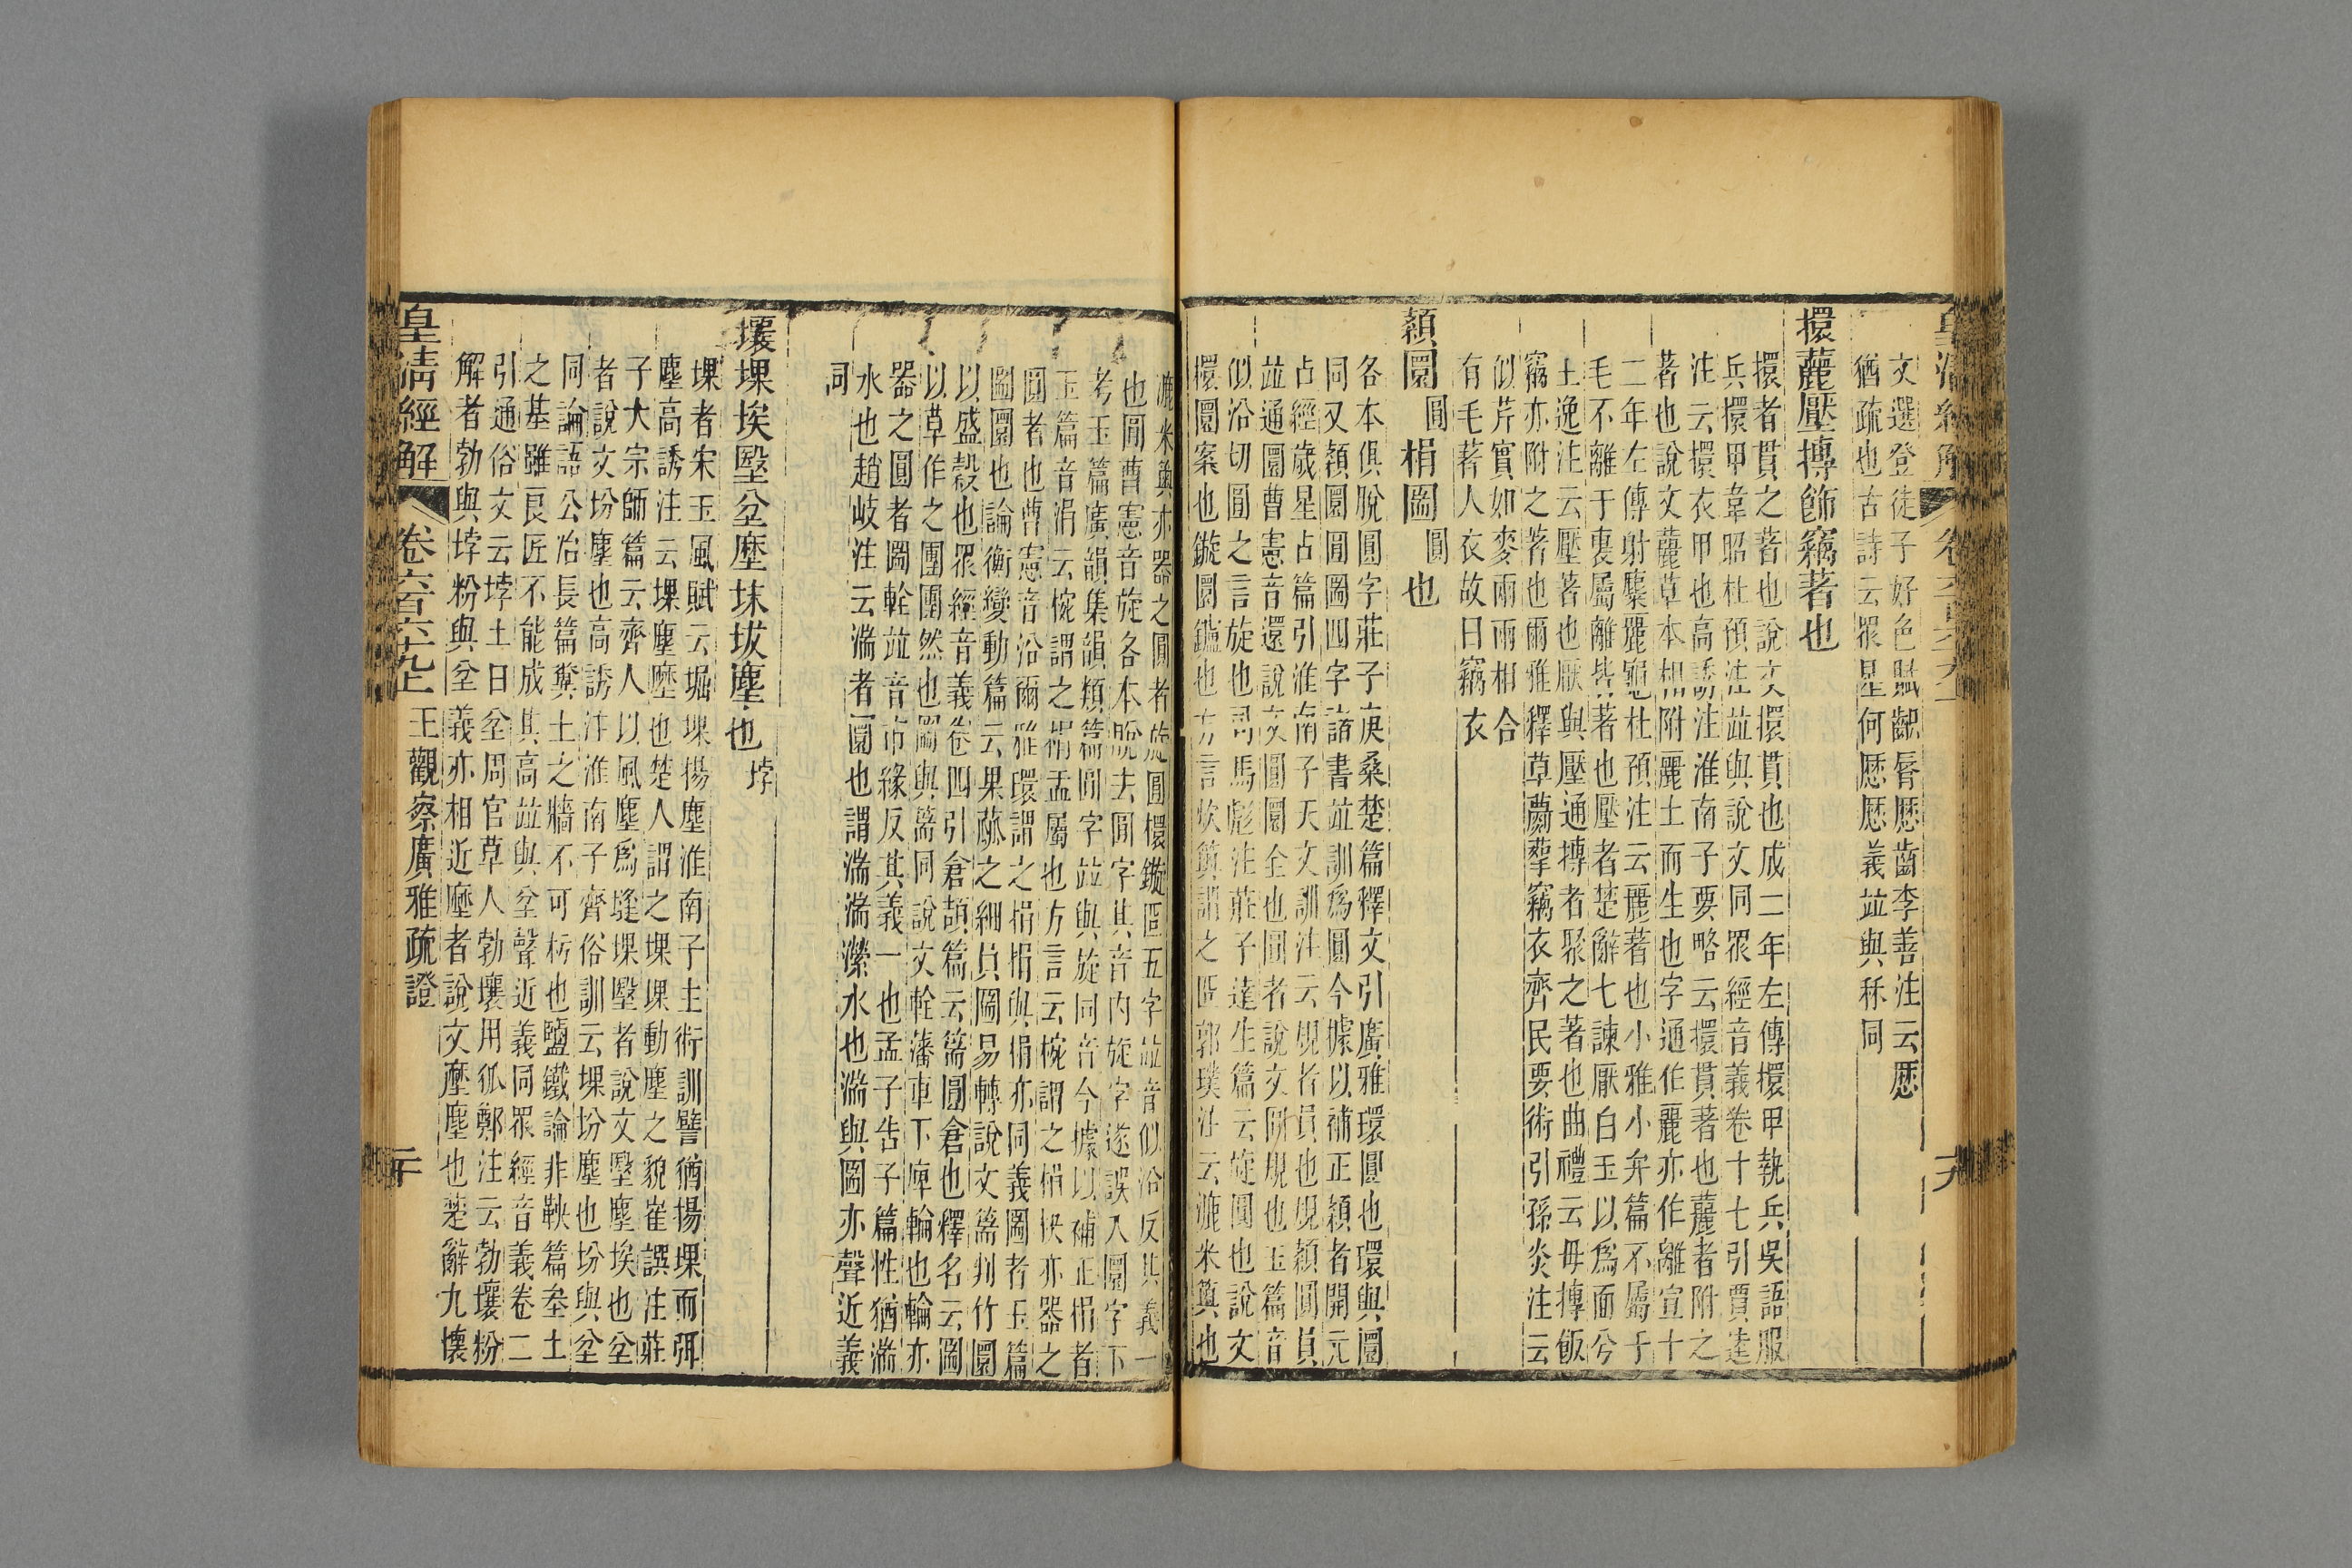 文選登徒子好色賦齞脣歷齒李善注云歷
猶疏也古詩云眾星何歷歷義竝與秝同
擐䕻壓摶飾竊著也
擐者貫之著也說文擐貫也成二年左傳擐甲執兵吳語服
兵擐甲韋昭杜預注竝與說文同眾經音義卷十七引賈逵
注云擐衣甲也高誘注淮南子要略云擐貫著也䕻者附之
著也說文䕻草木相附䕻土而生也字通作麗亦作離宣十
二年左傳射麋麗龜杜預注云麗著也小雅小弁篇不屬于
毛不離于裏屬離皆著也壓者楚辭七諫厭白玉以為面兮
王逸注云壓著也厭與壓通摶者聚之著也曲禮云毋摶飯
竊亦附之著也爾雅釋草蘮蒘竊衣齊民要術引孫炎注云
似芹實如麥兩兩相合
有毛著人衣故曰竊衣
圜 圓 圖 圓 也
各本俱脫圓字莊子庚桑楚篇釋文引廣雅環圓也環與圜
同又圜圓四字諸書竝訓為圓今據以補正者開元
占經歲星占篇引淮南子天文訓注云者員也圓員
竝通圜曹憲音還說文圜全也圓者說文圓規也玉篇音
似沿切圓之言旋也司馬彪注莊子達生篇云旋圓也說文
圜案也鏇圜鑪也方言炊䉛謂之匠郭璞注云漉米䉛也
漉米䉛亦器之圓者旋圓檈鏇匠五字竝音似沿反其義一
也圓曹憲音旋各本脫去圓字其音內旋字遂誤入圜字下
考玉篇廣韻集韻類篇圓字竝與旋同音今據以補正梋者
玉篇音涓云椀謂之梋盂屬也方言云椀謂之梋抉亦器之
圓者也曹憲音沿爾雅環謂之捐捐與梋亦同義圖者玉篇
圖圜也論衡變動篇云果蓏之細員圖易轉說文篅判竹圜
以盛穀也眾經音義卷四引倉頡篇云篅圓倉也釋名云圖
以草作之團團然也圖與篅同說文輇藩車下庳輪也輪亦
器之圓者圖輇竝音巿緣反其義一也孟子告子篇性猶湍
水也趙岐注云湍者圜也謂湍湍瀠水也湍與圖亦聲近義
同
壤堁埃堅坌塺坺塵也 㘄
堁者宋玉風賦云堀堁揚塵淮南子主術訓譬猶揚堁而弭
塵高誘注云堁塵塺也楚人謂之堁堁動塵之貌崔譔注莊
子大宗師篇云齊人以風塵為𡏖堁堅者說文堅塵埃也坌
者說文坋塵也高誘注淮南子齊俗訓云堁坋塵也坋與坌
同論語公冶長篇糞土之牆不可杇也鹽鐵論非鞅篇坌土
之基雖良匠不能成其高竝與坌聲近義同眾經音義卷二
引通俗文云㘄土曰坌周官草人勃壤用狐鄭注云勃壤粉
解者勃與㘄粉與坌義亦相近塺者說文塺塵也楚辭九懷
皇清經解 卷六百六十九上 王觀察廣雅疏證 二十